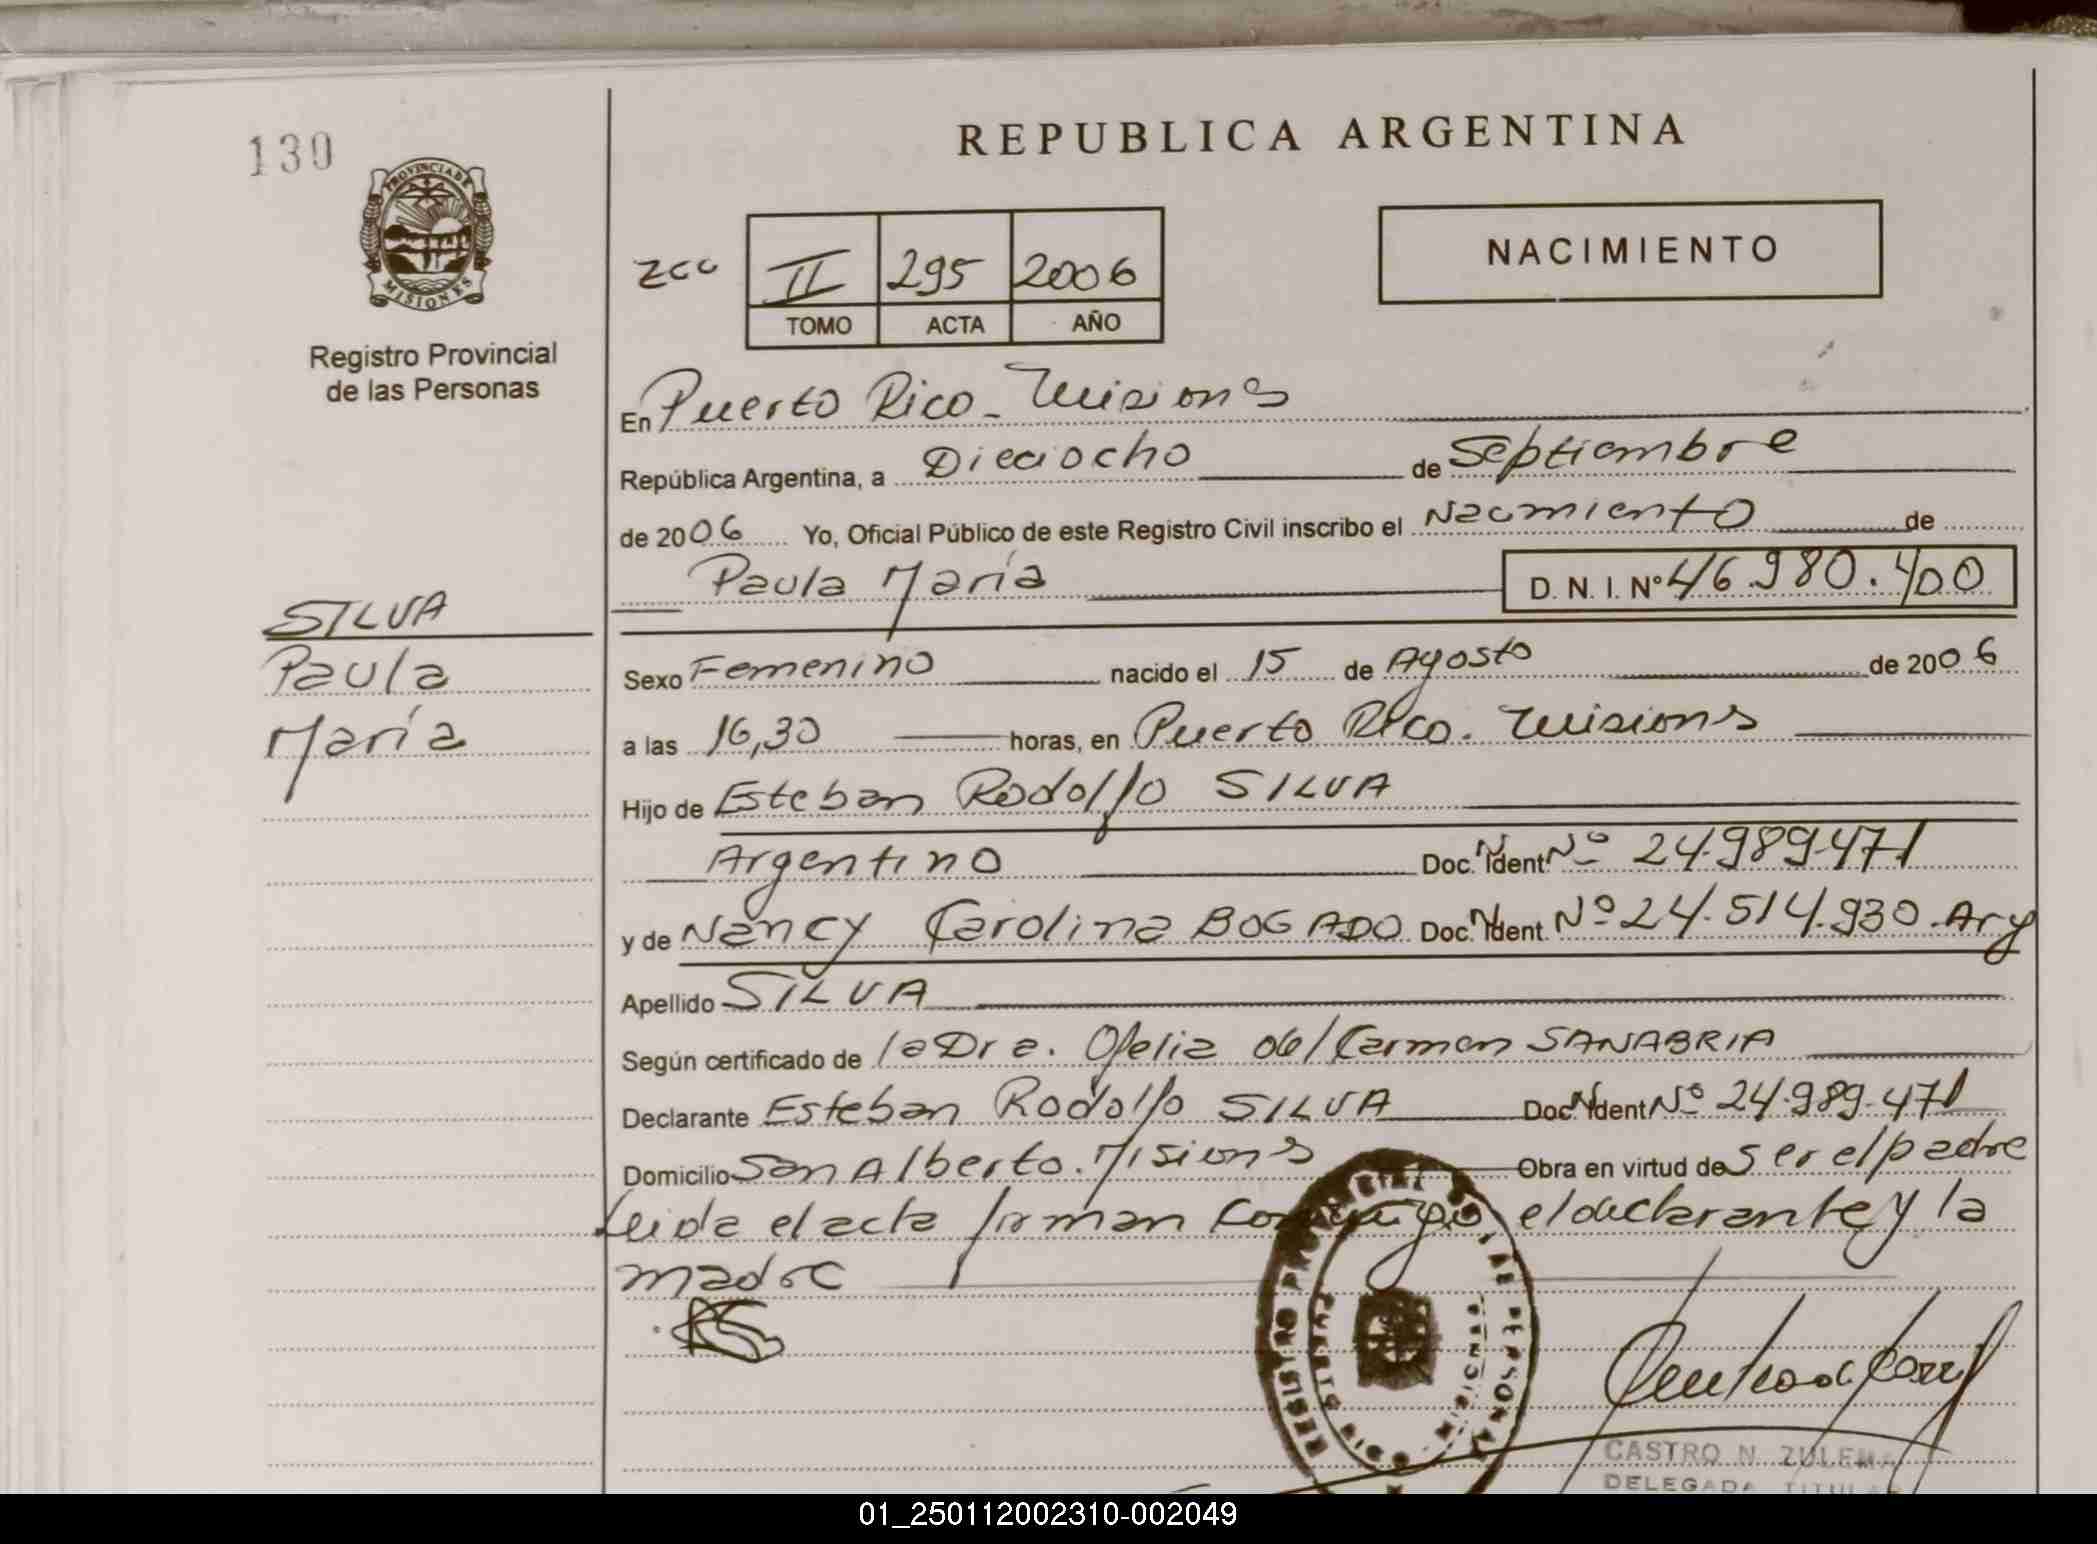 130
PROVINCIA DE
MISIONES
Registro Provincial
de las Personas
SILVA
Paula
María
REPUBLICA ARGENTINA
zcc II 295 2006
TOMO ACTA AÑO
NACIMIENTO
En Puerto Rico - Misiones
República Argentina, a Dieciocho de Septiembre
de 2006 Yo, Oficial Público de este Registro Civil inscribo el Nacimiento de
Paula María D. N. I. Nº 46.980.400
Sexo Femenino nacido el 15 de Agosto de 2006
a las 16,30 horas, en Puerto Rico. Misiones
Hijo de Esteban Rodolfo SILVA
Argentino Doc. Ident. Nº 24.989.471
y de Nancy Carolina BOGADO Doc. Ident. Nº 24.514.930. Arg
Apellido SILVA
Según certificado de la Dra. Ofelia del Carmen SANABRIA
Declarante Esteban Rodolfo SILVA Doc. Ident. Nº 24.989.471
Domicilio San Alberto. Misiones Obra en virtud de ser el padre
Leida el acta firman conmigo el declarante y la
madre
REGISTRO PROVINCIAL DE LAS PERSONAS
PUERTO RICO
MISIONES
CASTRO N. ZULEMA
DELEGADA TITULAR
01_250112002310-002049